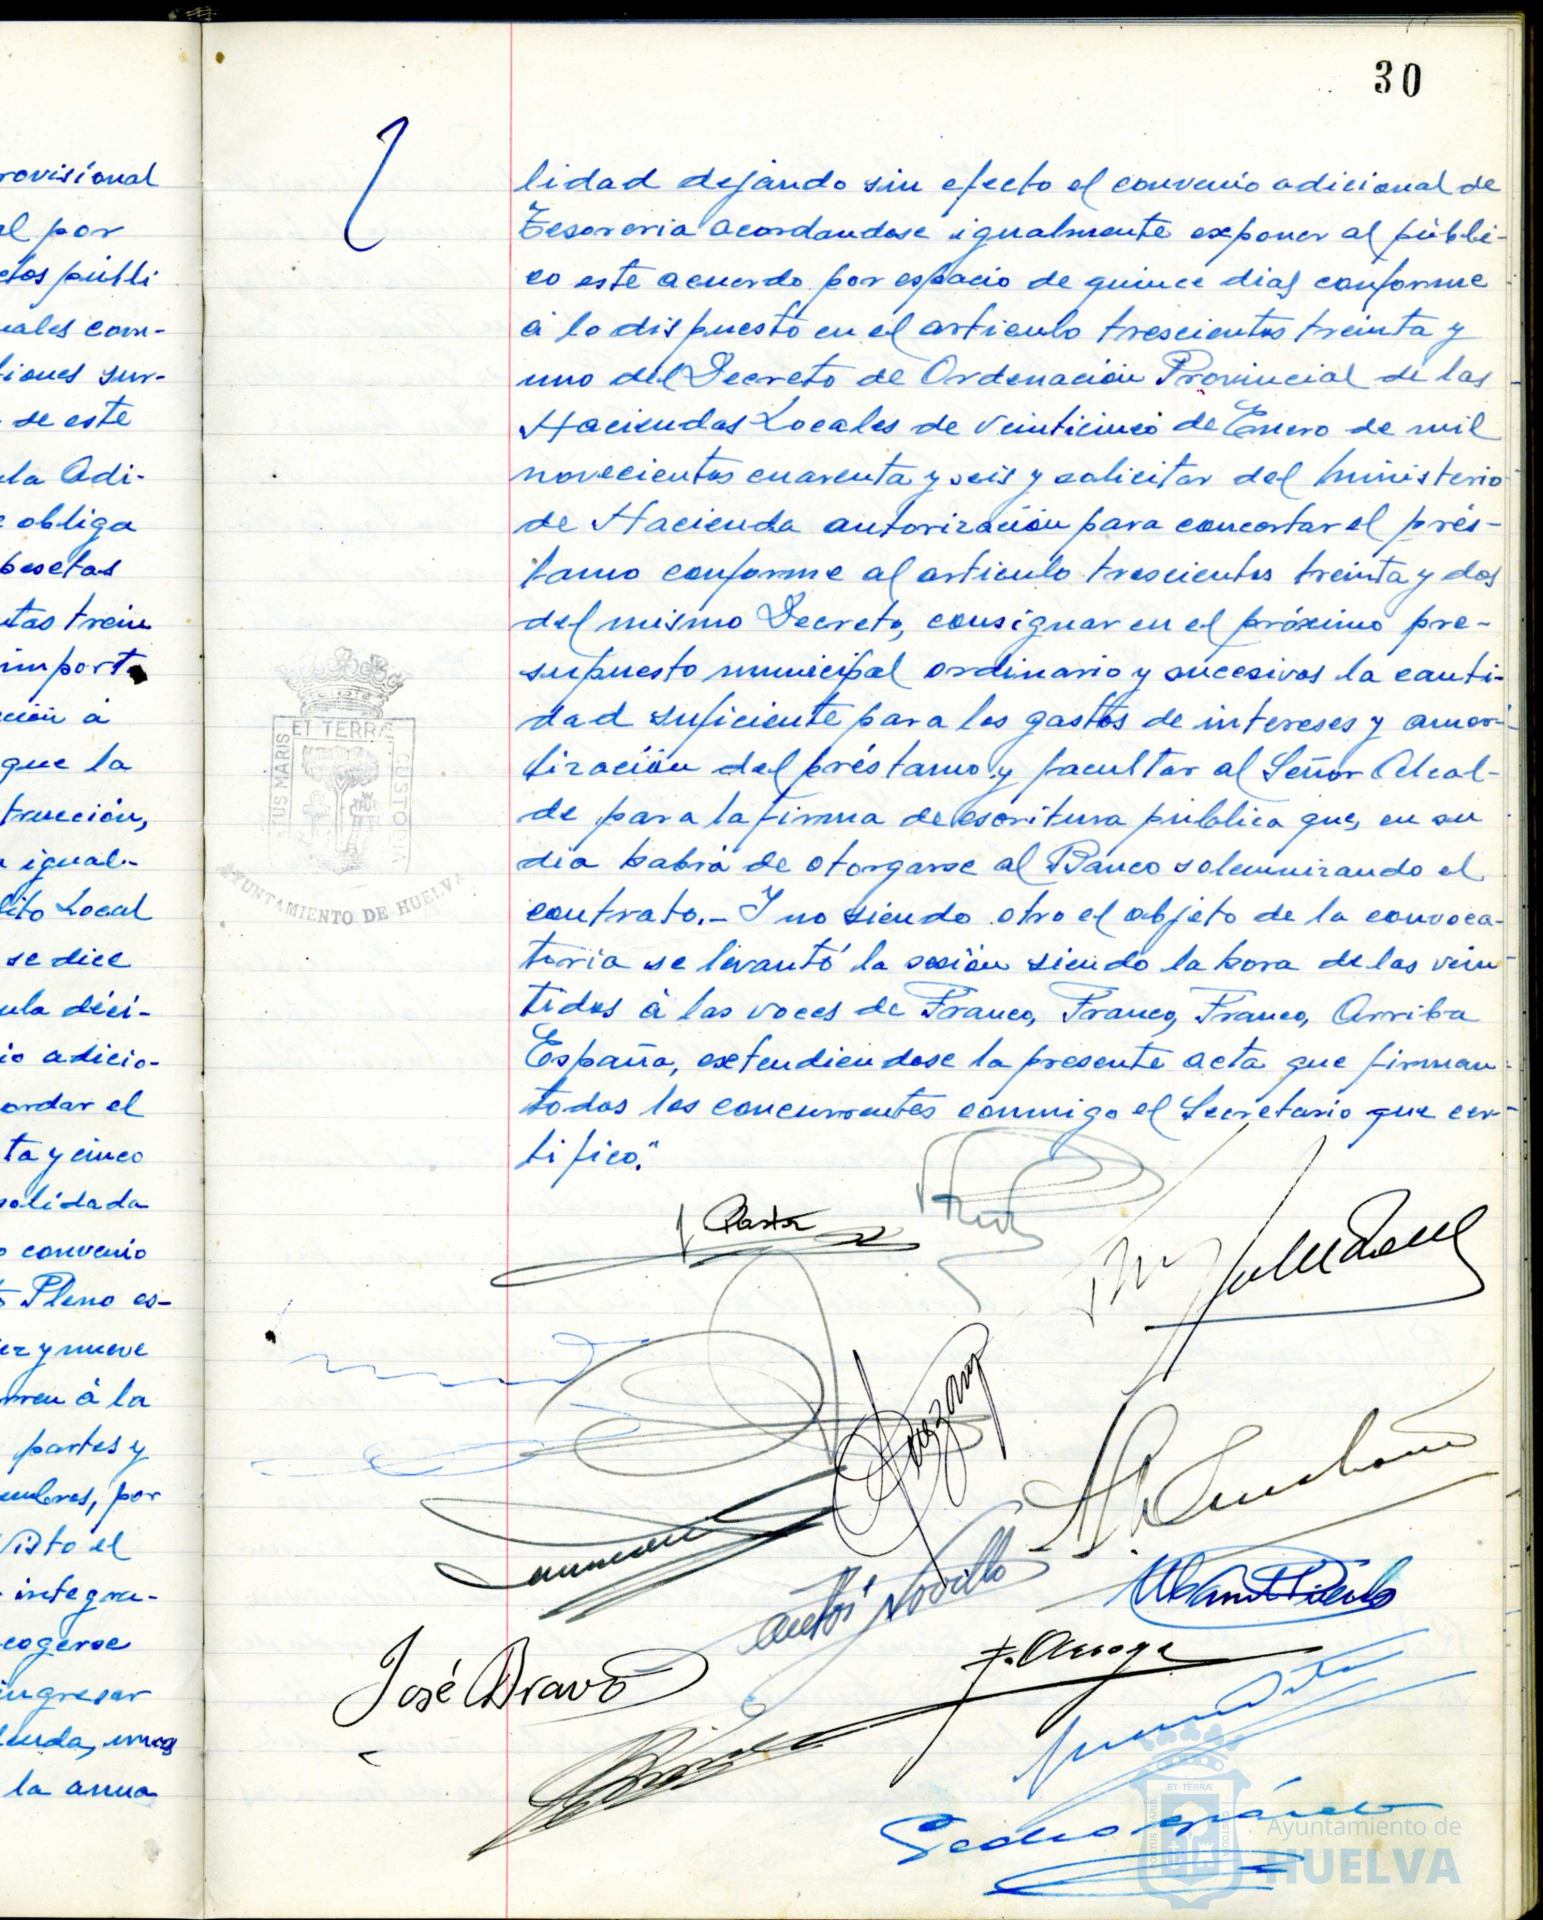 30
rovisional
el por
ctos públi
uales com-
tiones sur-
de este
ula Adi-
e obliga
pesetas
ntas trein
importe
ción á
que la
trucción,
igual-
dito Local
se dice
ula déci-
io adicio-
ordar el
ta y cinco
solidada
o convenio
Pleno es-
ez y nueve
rren á la
partes y
umbres, por
Visto el
integra-
cogerse
ingresar
deuda, unas
la anua
lidad dejando sin efecto el convenio adicional de
Tesoreria acordandose igualmente exponer al públi-
co este acuerdo por espacio de quince dias conforme
á lo dispuesto en el articulo trescientos treinta y
uno del Decreto de Ordenación Provincial de las
Haciendas Locales de veinticinco de Enero de mil
novecientos cuarenta y seis y solicitar del Ministerio
de Hacienda autorización para concertar el prés-
tamo conforme al articulo trescientos treinta y dos
del mismo Decreto, consignar en el próximo pre-
supuesto municipal ordinario y sucesivos la canti-
dad suficiente para los gastos de intereses y amor-
tización del préstamo y facultar al Señor Alcal-
de para la firma de escritura pública que, en su
dia habrá de otorgarse al Banco solemnizando el
contrato.- Y no siendo otro el objeto de la convoca-
toria se levantó la sesión siendo la hora de las vein
tidos á las voces de Franco, Franco, Franco, Arriba
España, extendiendose la presente acta que firman
todos los concurrentes conmigo el Secretario que cer-
tifico."
ET TERRÆ
CUSTODIA
AYUNTAMIENTO DE HUELVA
José Bravo
Pedro
Ayuntamiento de
HUELVA